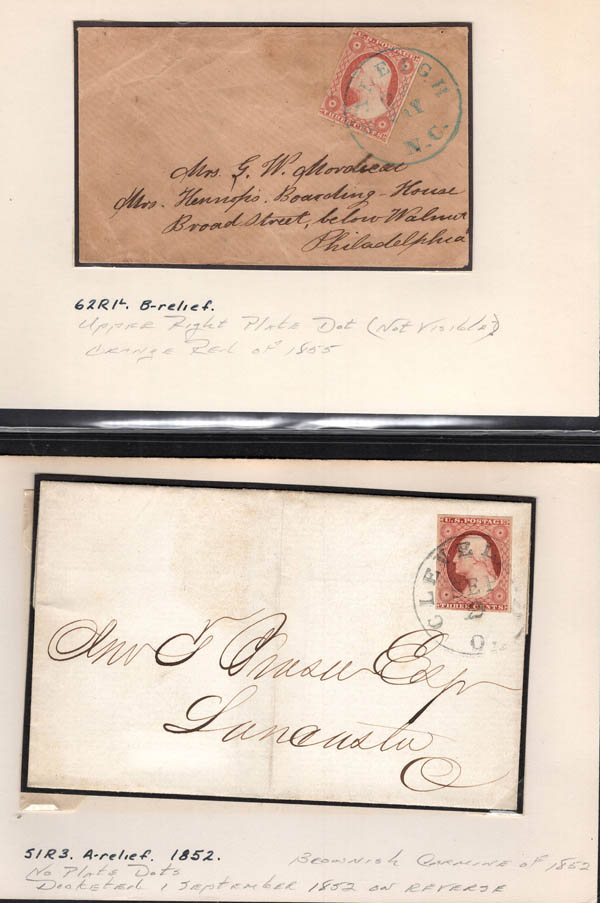 U.S. POSTAGE
THREE CENTS
RALEIGH
N.C.
Mrs. G. W. Mordecai
Mrs. Hennopis. Boarding-House
Broad Street, below Walnut
Philadelphia
62R1L. B-relief.
Upper Right Plate Dot (Not Visible)
Orange Red of 1855
U.S. POSTAGE
THREE CENTS
CLEVEL
SEP
O
Jno T Brasee Esqr
Lancaster
O
51R3. A-relief. 1852.
Brownish Carmine of 1852
No Plate Dots
Docketed 1 September 1852 on reverse